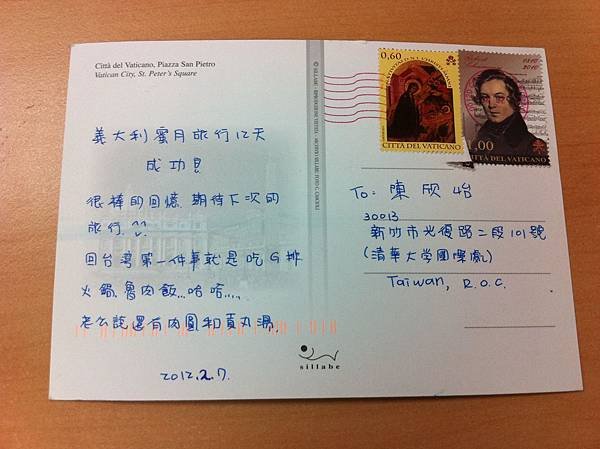 Città del Vaticano, Piazza San Pietro
Vatican City, St. Peter's Square
義大利蜜月旅行12天
成功!!
很棒的回憶 期待下次的
旅行 ^^
回台灣第一件事就是吃G排
火鍋.魯肉飯...哈哈....
老公說還有肉圓和貢丸湯.
2012.2.7.
sillabe
0,60
CITTÀ DEL VATICANO
1810
2010
1,00
CITTÀ DEL VATICANO
To: 陳欣怡
30013
新竹市光復路二段101號
(清華大学國際處)
Taiwan, R.O.C.